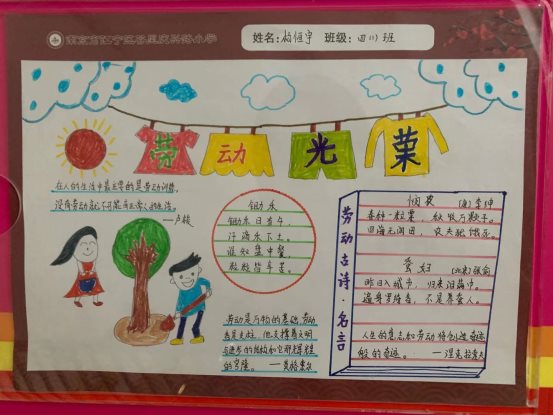 南京市江宁区谷里庆兴路小学
姓名: 班级: 四(1)班
劳动光荣
在人的生活中最主要的是劳动训练,
没有劳动就不可能有正常人的生活。
——卢梭
锄禾
锄禾日当午,
汗滴禾下土。
谁知盘中餐,
粒粒皆辛苦。
劳动是万物的基础,劳动
者是支柱,他支撑着文明
与进步的结构和它那辉煌
的穹隆。 ——英格索尔
劳动古诗·名言
悯农 (唐)李绅
春种一粒粟,秋收万颗子。
四海无闲田,农夫犹饿死。
蚕妇 (北宋)张俞
昨日入城市,归来泪满巾。
遍身罗绮者,不是养蚕人。
人生的意志和劳动将创造奇迹
般的奇迹。 ——涅克拉索夫